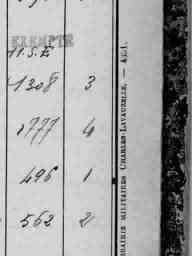 EXEMPTE
11.S.E
1308 3
1777 4
496 1
562 2
RAIRIE MILITAIRES CHARLES-LAVAUZELLE. — A.E.1.